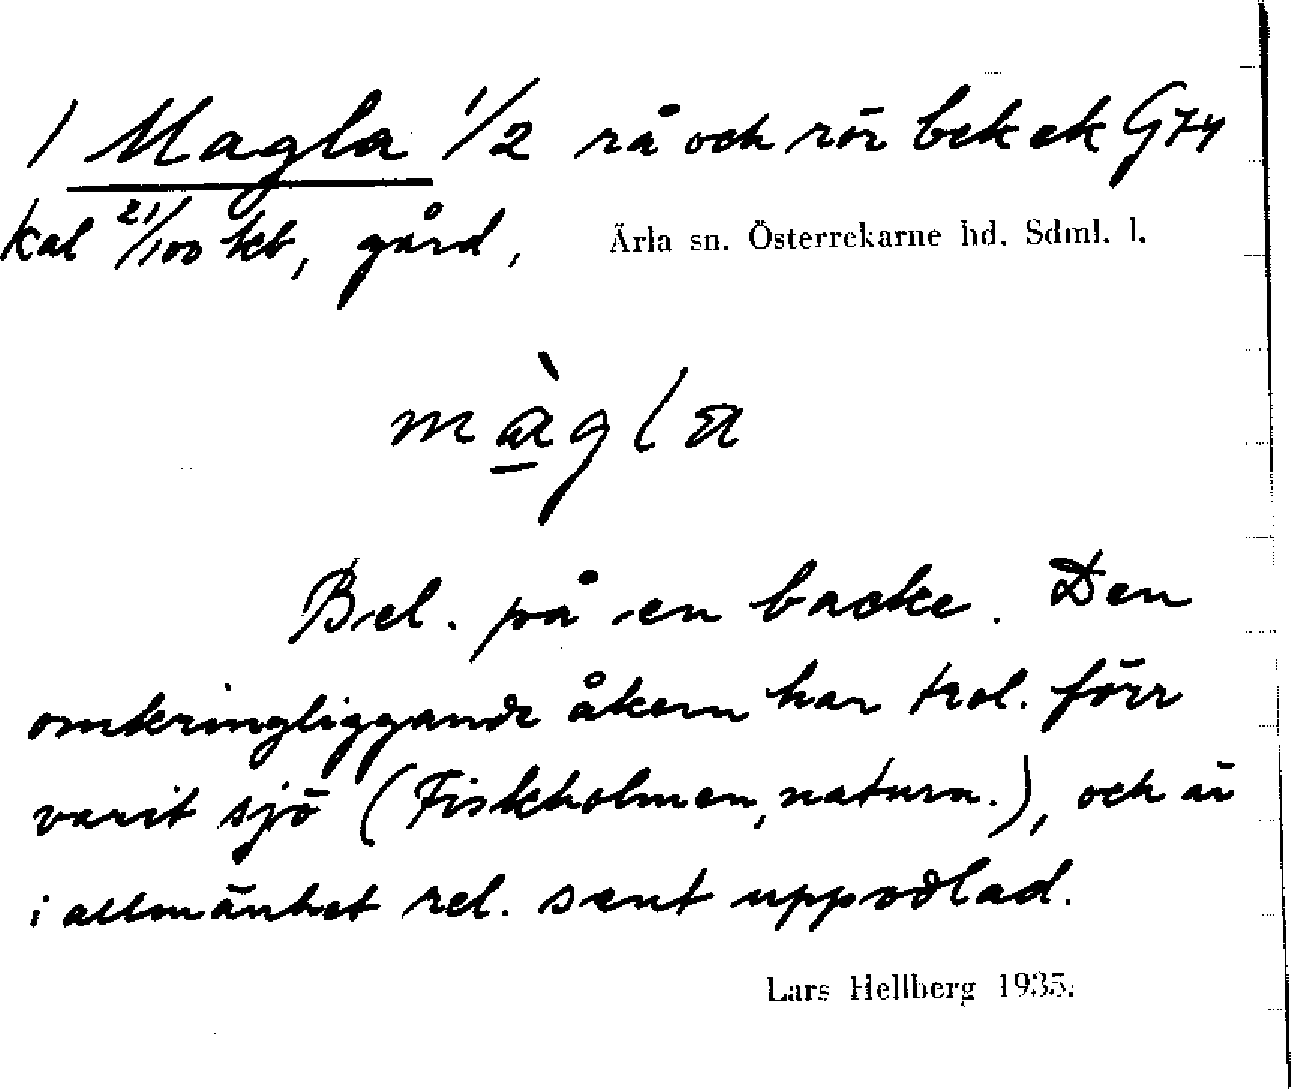 1 Magla 1/2 rå och rör bek ek G74
kal 21/100 kb, gård, Ärla sn. Österrekarne hd. Sdml. l.
màgla
Bel. på en backe. Den
omkringliggande åkern har trol. förr
varit sjö (Fiskholmen, naturn.), och är
i allmänhet rel. sent uppodlad.
Lars Hellberg 1935.